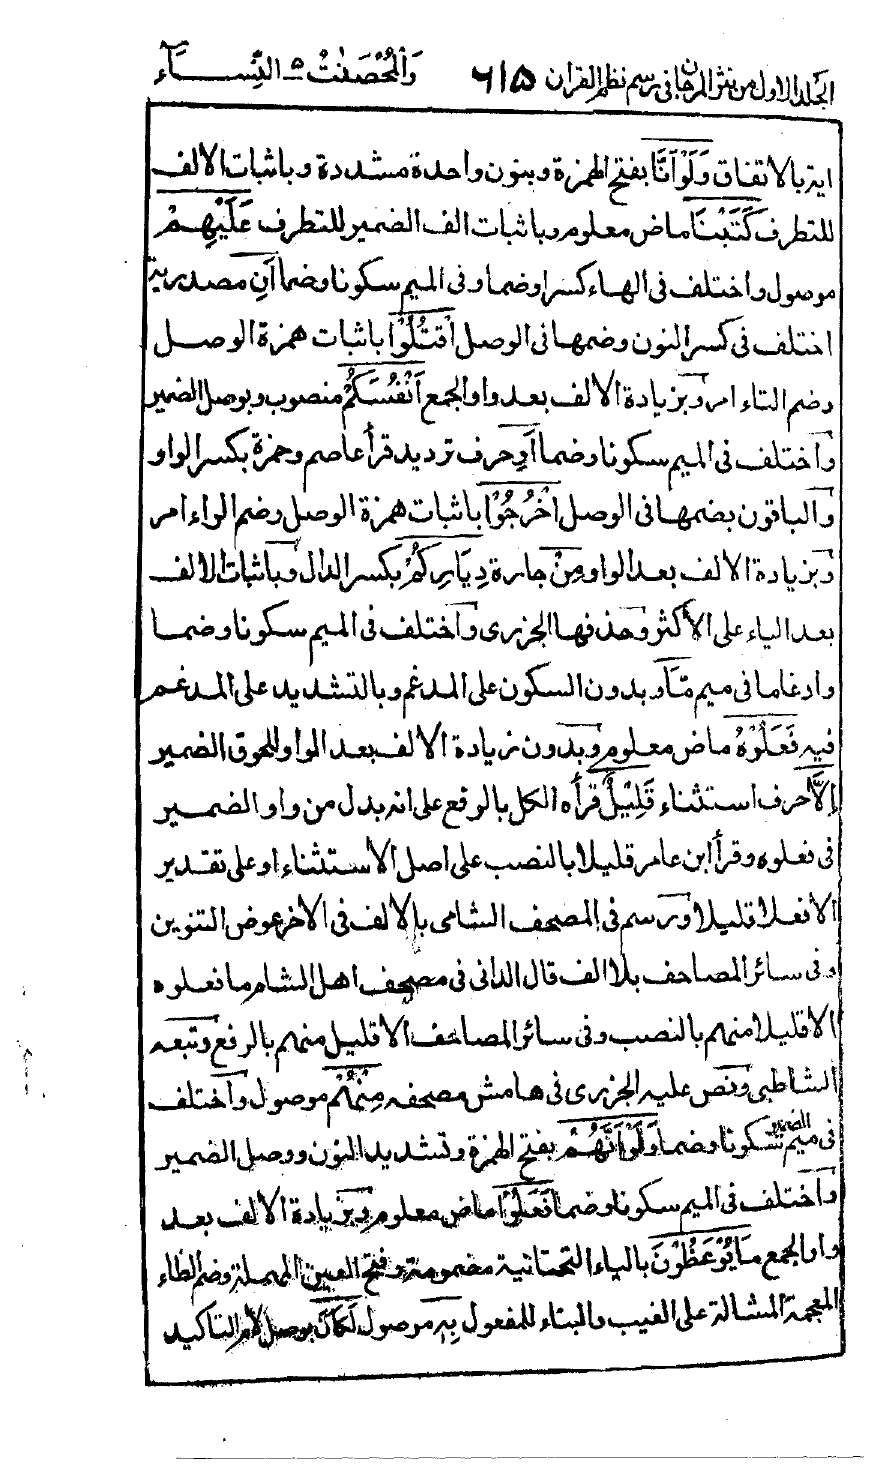 الجلد الاول من نثر المرجان فی رسم نظم القرآن ٦١٥ وَالْمُحْصَنٰتُ ٥ النِّسَآء
اية بالاتفاق وَلَوْ اَنَّا بفتح الهمزة وبنون واحدة مشددة وباثبات الالف
للتطرف كَتَبْنَا ماض معلوم وباثبات الف الضمير للتطرف عَلَيْهِمْ
موصول واختلف فی الهاء كسرا وضما وفی الميم سكونا وضما اَنِ مصدرية
اختلف فی كسر النون وضمها فی الوصل اقْتُلُوْا باثبات همزة الوصل
وضم التاء امر وبزيادة الالف بعد واو الجمع اَنْفُسَكُمْ منصوب وبوصل الضمير
واختلف فی الميم سكونا وضما اَوِ حرف ترديد قرأ عاصم وحمزة بكسر الواو
والباقون بضمها فی الوصل اخْرُجُوْا باثبات همزة الوصل وضم الراء امر
وبزيادة الالف بعد الواو مِنْ جارة دِيَارِكُمْ بكسر الدال وباثبات الالف
بعد الياء على الاكثر وحذفها الجزرى واختلف فی الميم سكونا وضما
وادغاما فی ميم مَّا وبدون السكون على المدغم وبالتشديد على المدغم
فيه فَعَلُوْهُ ماض معلوم وبدون زيادة الالف بعد الواو للحوق الضمير
اِلَّا حرف استثناء قَلِيْلٌ قرأه الكل بالرفع على انه بدل من واو الضمير
فی فعلوه وقرأ ابن عامر قليلا بالنصب على اصل الاستثناء او على تقدير
الا فعلا قليلا ورسم فی المصحف الشامى بالالف فی الاخر عوض التنوين
وفی سائر المصاحف بلا الف قال الدانى فی مصحف اهل الشام ما فعلوه
الا قليلا منهم بالنصب وفی سائر المصاحف الا قليل منهم بالرفع وتبعه
الشاطبى ونص عليه الجزرى فی هامش مصحفه مِنْهُمْ موصول واختلف
فی ميم الضمير سكونا وضما وَلَوْ اَنَّهُمْ بفتح الهمزة وتشديد النون ووصل الضمير
واختلف فی الميم سكونا وضما فَعَلُوْا ماض معلوم وبزيادة الالف بعد
واو الجمع مَا يُوْعَظُوْنَ بالياء التحتانية مضمومة وفتح العين المهملة وضم الظاء
المعجمة المشالة على الغيب والبناء للمفعول بِهٖ موصول لَكَانَ بوصل لام التاكيد